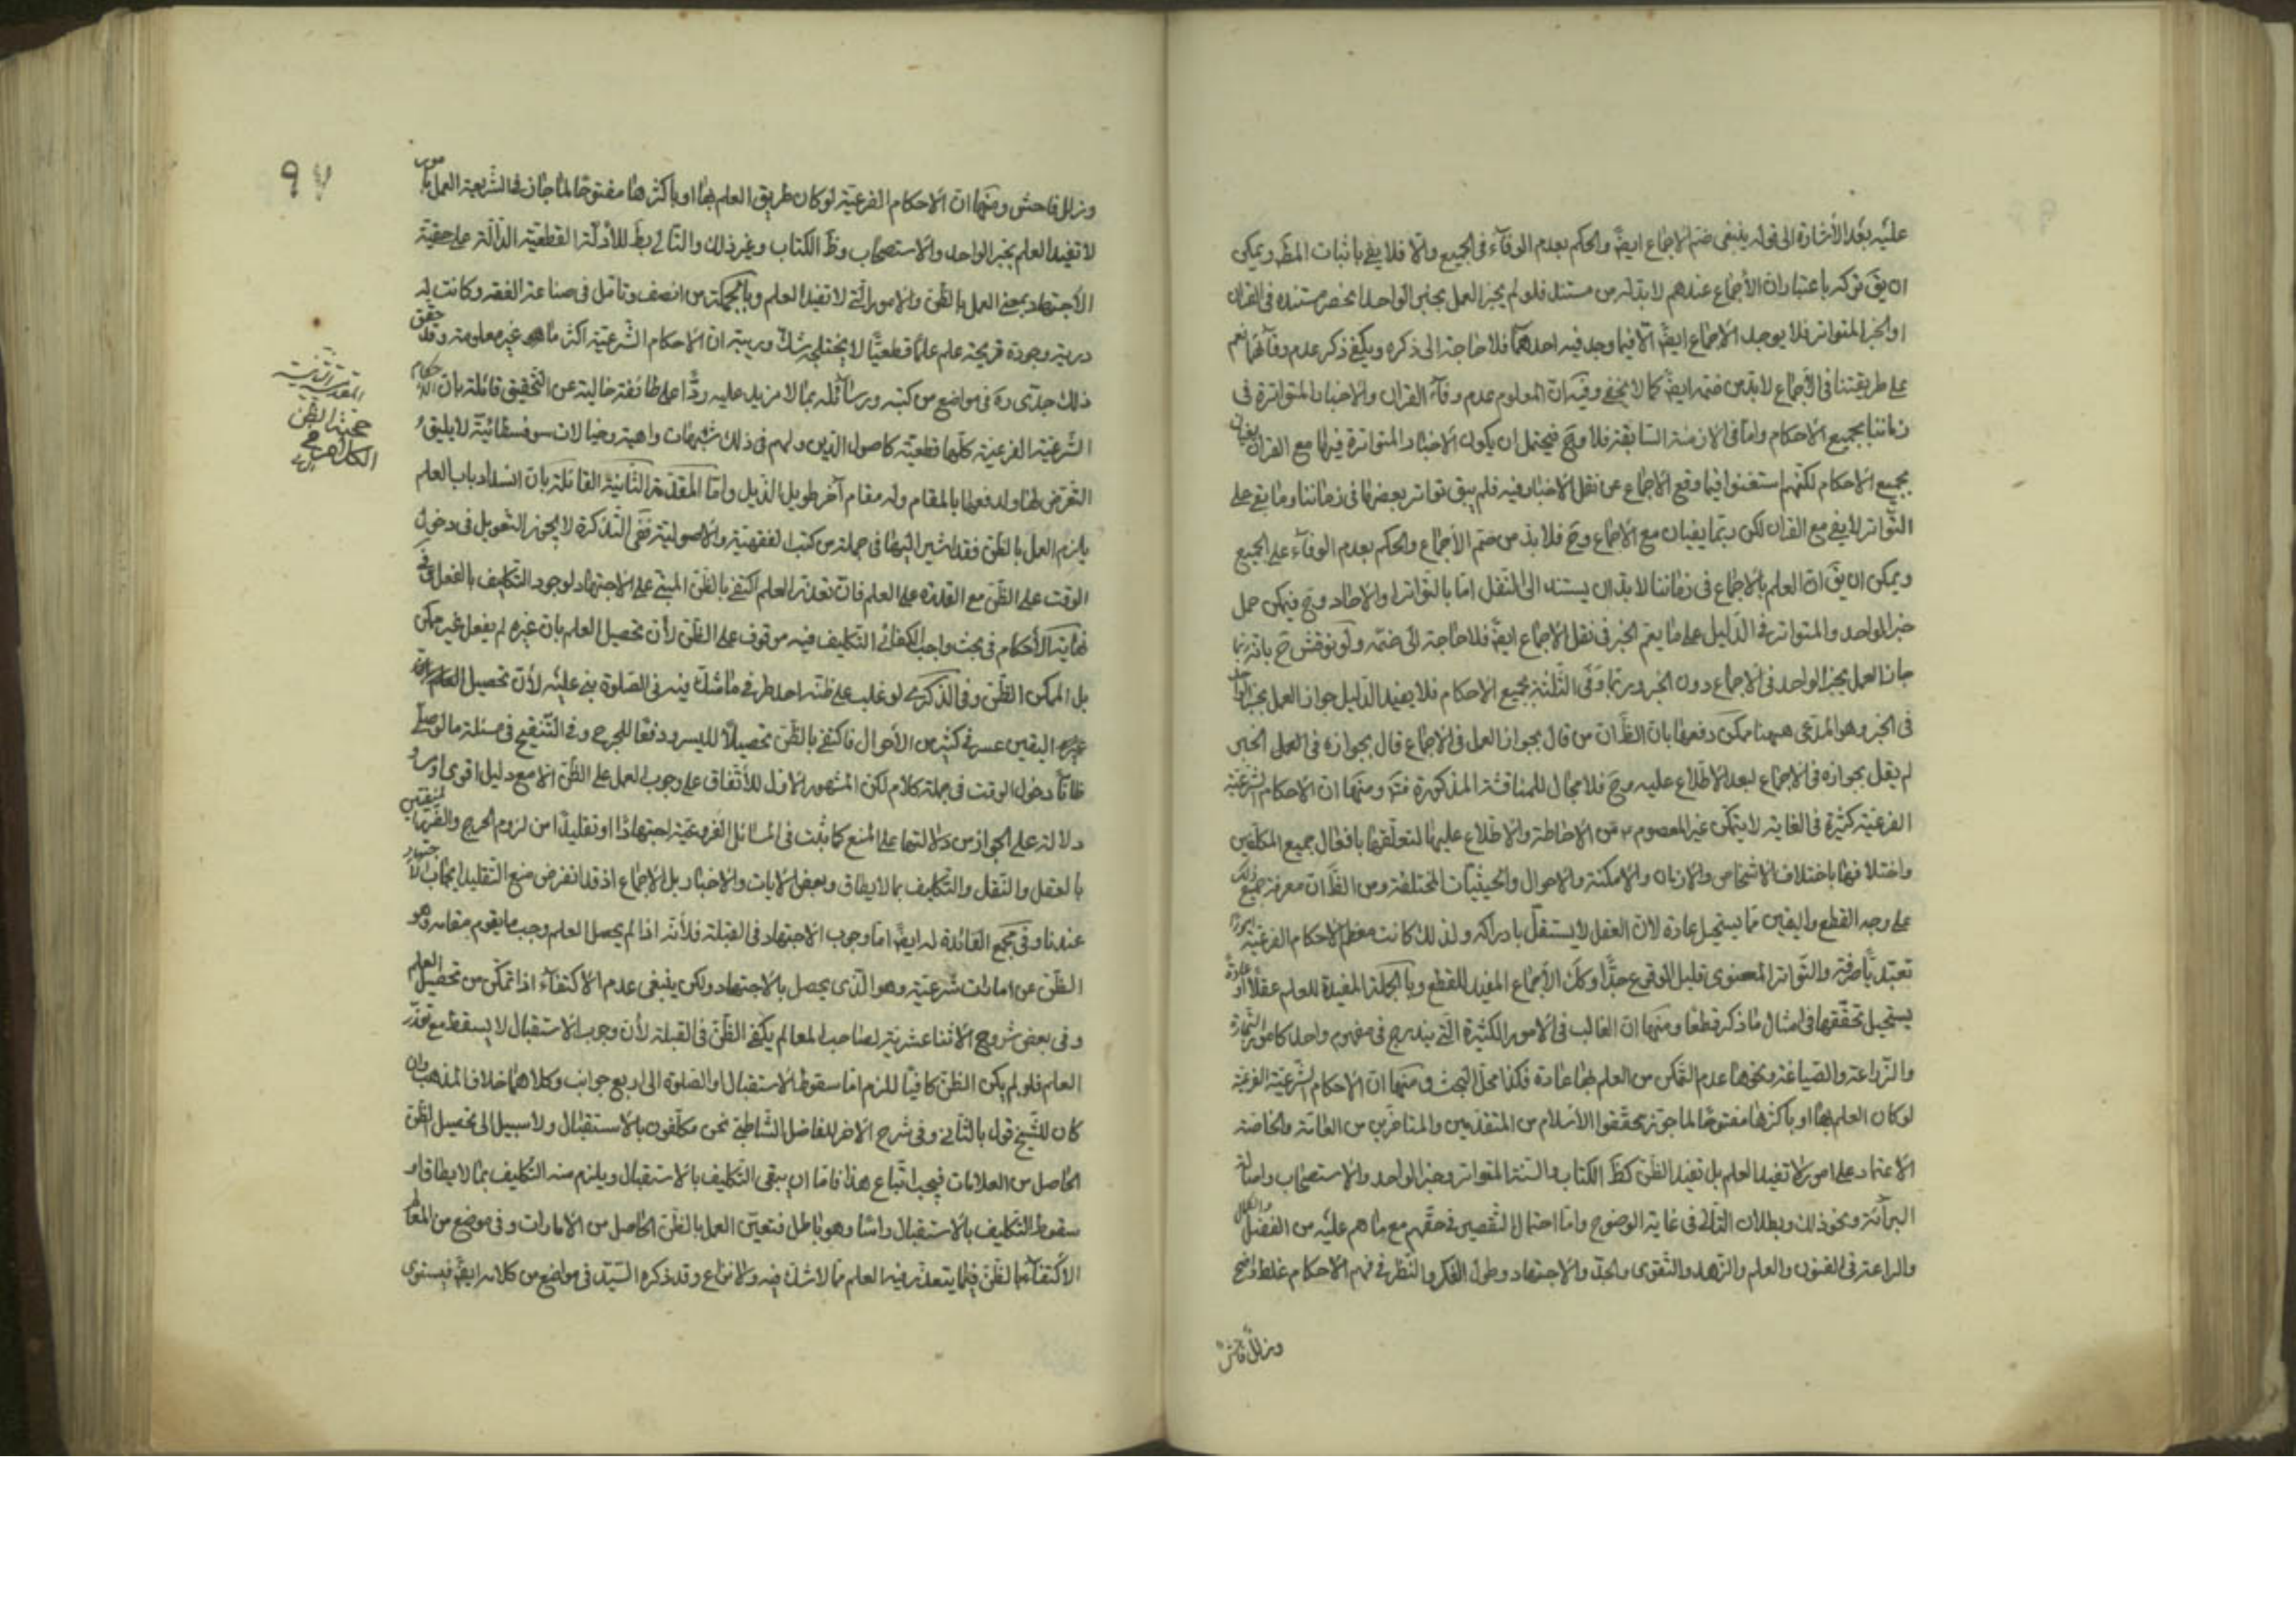 عليه بعد الأشارة الى قوله ينبغى ضم الاجماع ايضً والحكم بعدم الوفآء فى الجميع والّا فلا يفى باثبات المطَ ويمكن
ان يقَ تركه باعتباران الأجماع عندهم لا بدّ له من مستند فلو لم يجز العمل بخبر الواحد انحصر مستنده فى القران
او الخبر المتواتر فلا يوجد الاجماع ايضً الّا فيما وجد فيه احدهما فلا حاجة الى ذكره ويكفى ذكر عدم وفآئهما نعم
على طريقتنا فى الأجماع لا بدّ من ضمّه ايضً كما لا يخفى وفيه انّ المعلوم عدم وفآء القران والاخبار المتواترة فى
زماننا بجميع الاحكام وامّا فى الازمنة السّابقة فلا وحَ فيحتمل ان يكون الاخبار المتواترة فيها مع القران يفيان
بجميع الاحكام لكنّهم استغنوا فيما وقع الاجماع عن نقل الاخبار فيه فلم يبق تواتر بعضها فى زماننا وما بقى على
التّواتر لا يفى مع القران لكن ربّما يفيان مع الاجماع وحَ فلا بدّ من ضمّ الأجماع والحكم بعدم الوفآء على الجميع
ويمكن ان يقَ انّ العلم بالاجماع فى زماننا لا بدّ ان يستند الى النّقل امّا بالتّواتر او الاحاد وحَ فيمكن حمل
خبر الواحد والمتواتر فى الدّليل على ما يعمّ الخبر فى نقل الاجماع ايضً فلا حاجة الى ضمّه ولو نوقش حَ بانّه ربّما
جاز العمل بخبر الواحد فى الاجماع دون الخبر وربّما وفى الثّلثة بجميع الاحكام فلا يفيد الدّليل جواز العمل بخبر الواحد
فى الخبر وهو المدّعى ههنا يمكن دفعها بان الظَ انّ من قال بجواز العمل فى الاجماع قال بجوازه فى العمل الخبر
لم يقل بجوازه فى الاجماع لبعد الاطّلاع عليه وحَ فلا مجال للمناقشة المذكورة فتَ ومنها انّ الاحكام الشّرعيّة
الفرعيّة كثيرة فى الغاية لا يتمكّن غير المعصوم من الاحاطة والاطّلاع عليها لتعلّقها بافعال جميع المكلّفين
واختلافها باختلاف الاشخاص والازمان والامكنة والاحوال والحيثيّات المختلفة ومن الظَ انّ معرفة جميع ذلك
على وجه القطع واليقين ممّا يستحيل عادة لانّ العقل لا يستقلّ بادراكه ولذلك كانت معظم الاحكام الفرعيّة امورًا
تعبّديّا صرفة والتّواتر المعنوى قليل الوقوع جدًّا وكذا الأجماع المفيد للقطع وبالجملة المفيدة للعلم عقلًا او عادةً
يستحيل تحقّقها فى امثال ما ذكر قطعًا ومنها انّ الغالب فى الامور الكثيرة الّتى يندرج فى مفهوم واحد كامور التّجارة
والزّراعة والصّياغة ونحوها عدم التّمكن من العلم بها عادة فكذا محلّ البحث ومنها انّ الاحكام الشّرعيّة الفرعيّة
لو كان العلم بها او باكثرها مفتوحًا لما جوّز محقّقوا الاسلام من المتقدّمين والمتاخّرين من العامّة والخاصّة
الاعتماد على امور لا تفيد العلم بل تفيد الظّن كظَ الكتاب والسّنة المتواتر وخبر الواحد والاستصحاب واصالة
البرآئة ونحو ذلك وبطلان التّالى فى غاية الوضوح وامّا احتمال التّقصير فى حقّهم مع ما هم عليه من الفضل والكمال
والبراعة فى الفنون والعلم والزّهد والتّقوى والجدّ والاجتهاد وطول الفكر والنّظر فى فهم الاحكام غلط واضح
وزلل فاحش
97
وزلل فاحش ومنها انّ الاحكام الفرعيّة لو كان طريق العلم بها او باكثرها مفتوحًا لما جاز فى الشّريعة العمل بامور
لا تفيد العلم بخبر الواحد والاستصحاب وظَ الكتاب وغير ذلك والتّالى بطَ للأدلّة القطعيّة الدّالّة على حقيّة
الأجتهاد بمعنى العمل بالظّن والامور الّتى لا تفيد العلم وبالجملة من انصف وتامّل فى صناعة الفقه وكانت له
دربة وجودة قريحة علم علمًا قطعيًّا لا يختلجه شكّ وريبة ان الاحكام الشّرعيّة اكثرها هو غير معلومة وقد حقق
ذلك جدّى ره فى مواضع من كتبه ورسآئله بما لا مزيد عليه ردًّا على طآئفة خالية عن التّحقيق قائلة بان الاحكام
الشّرعيّة الفرعيّة كلّها قطعيّة كاصول الدّين ولهم فى ذلك شبهات واهية وخيالات سوفسطائيّة لا يليق
التّعرّض لها ولدفعها بالمقام وله مقام آخر طويل الذّيل وامّا المقدّمة الثّانية القائلة بان انسداد باب العلم
يلزم العمل بالظّن فقد اشير اليها فى جملة من كتب الفقهيّة والاصوليّة ففى التّذكرة لا يجوز التّعويل فى دخول
الوقت على الظّن مع القدرة على العلم فان تعذّر العلم اكتفى بالظّن المبنّى على الاجتهاد لوجود التّكليف بالفعل وفى
نهاية الأحكام فى بحث واجب الكفائى التّكليف فيه موقوف على الظّن لأن تحصيل العلم بان غيره لم يفعل غير ممكن
بل الممكن الظّن وفى الذّكرى لو غلب على ظنّه احد طرفى ما شك فيه فى الصّلوة بنى عليه لأنّ تحصيل العلم
اليقين عسر فى كثير من الأحوال فاكتفى بالظّن تحصيلًا لليسر ودفعًا للحرج وفى التّنقيح فى مسئلة ما لو صلّى
ظانّاً دخول الوقت فى جملة كلام لكن المشهور الاوّل للأتّفاق على وجوب العمل على الظّن الا مع دليل اقوى
دلالته على الجواز من دلالتها على المنع كما ثبت فى المسائل الفروعيّة اجتهادًا او تقليدًا من لزوم الحرج والضّرر المنفيين
بالعقل والنّقل والتّكليف بما لا يطاق وبعض الايات والاخبار بل الاجماع اذ قد انفرض منع التّقليد ايجاب الاجتهاد
عندنا وفى مجمع الفائدة له ايضً امّا وجوب الاجتهاد فى القبلة فلأنّه اذا لم يحصل العلم وجب ما يقوم مقامه وهو
الظّن عن امارات شرعيّة وهو الّذى يحصل بالاجتهاد ولكن ينبغى عدم الاكتفآء اذا تمكّن من تحصيل العلم
وفى بعض شروح الاثنا عشرية لصاحب المعالم يكفى الظّن فى القبلة لأن وجوب الاستقبال لا يسقط مع تعذّر
العلم فلو لم يكن الظّن كافيًا للزم امّا سقوط الاستقبال او الصّلوة الى اربع جوانب وكلاهما خلاف المذهب وان
كان للشّيخ قول بالثّانى وفى شرح الاخر للفاضل الشّاطبى نحن مكلّفون بالاستقبال ولا سبيل الى تحصيل الظّن
الحاصل من العلامات فيجب اتّباع هذا فامّا ان يبقى التّكليف بالاستقبال ويلزم منه التّكليف بما لا يطاق او
سقوط التّكليف بالاستقبال راسًا وهو باطل فتعيّن العمل بالظّن الحاصل من الامارات وفى موضع من المعالم
الأكتفآء بالظّن فيما يتعذّر فيه العلم ممّا لا شك فيه ولا نزاع وقد ذكره السّيّد فى مواضع من كلامه ايضً فيستوى
المقدمة الثانية
حجية الظن